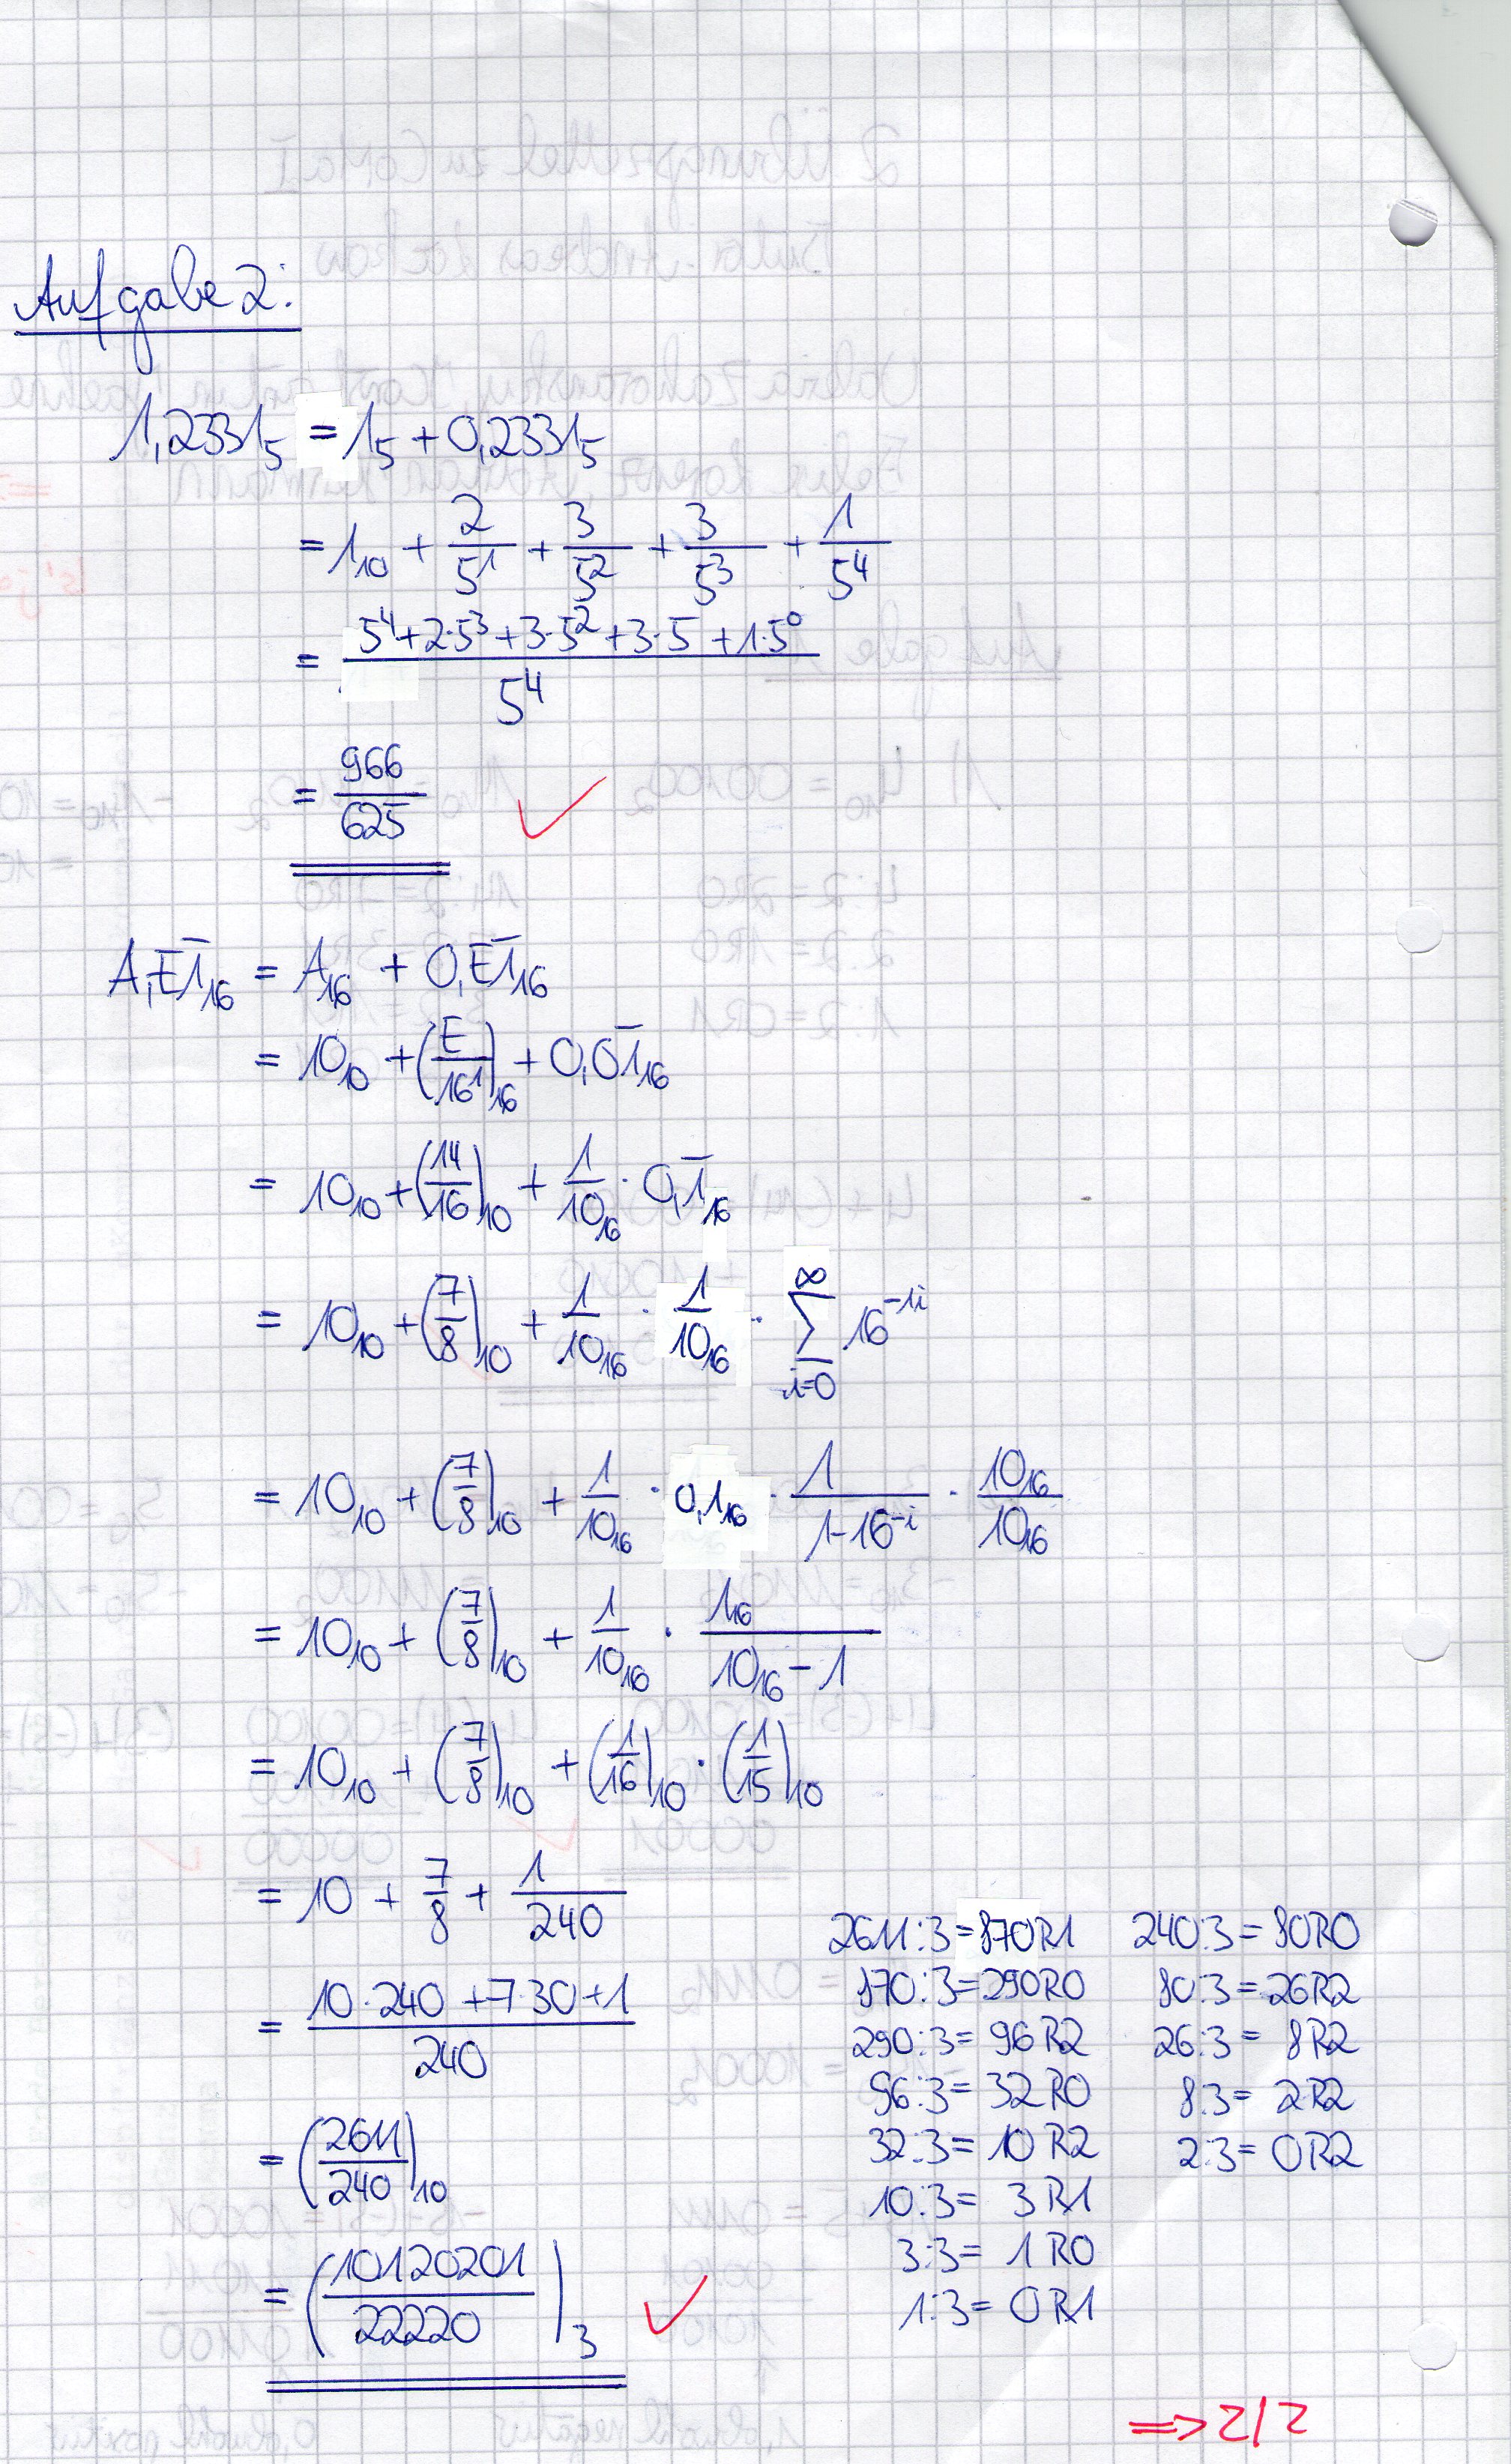 Aufgabe 2:
1,2331₅ = 1₅ + 0,2331₅
= 1₁₀ + 2/5¹ + 3/5² + 3/5³ + 1/5⁴
= (5⁴+2·5³+3·5²+3·5+1·5⁰)/5⁴
= 966/625 ✓
A,E1̅₁₆ = A₁₆ + 0,E1̅₁₆
= 10₁₀ + (E/16¹)₁₆ + 0,01̅₁₆
= 10₁₀ + (14/16)₁₀ + 1/10₁₆ · 0,1̅₁₆
= 10₁₀ + (7/8)₁₀ + 1/10₁₆ · 1/10₁₆ · ∞∑i=0 16⁻¹ⁱ
= 10₁₀ + (7/8)₁₀ + 1/10₁₆ · 0,1₁₆ · 1/(1-16⁻ⁱ) · 10₁₆/10₁₆
= 10₁₀ + (7/8)₁₀ + 1/10₁₆ · 1₁₆/(10₁₆-1)
= 10₁₀ + (7/8)₁₀ + (1/16)₁₀ · (1/15)₁₀
= 10 + 7/8 + 1/240
= (10·240+7·30+1)/240
= (2611/240)₁₀
= (10120201/22220)₃ ✓
2611:3=870R1
870:3=290R0
290:3=96R2
96:3=32R0
32:3=10R2
10:3=3R1
3:3=1R0
1:3=0R1
240:3=80R0
80:3=26R2
26:3=8R2
8:3=2R2
2:3=0R2
=> 2/2